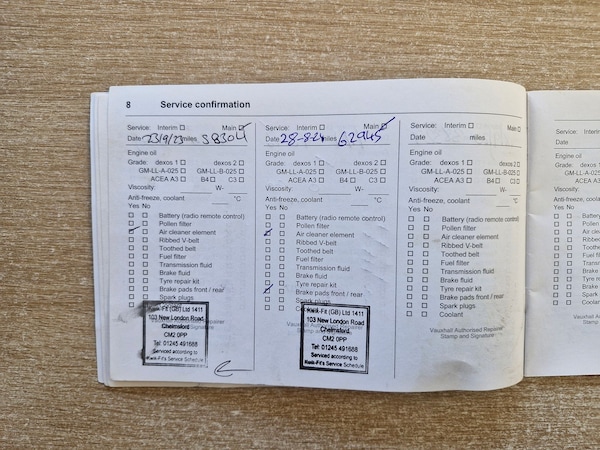 8 Service confirmation
Service: Interim Main
Date 23/9/23 miles 58304
Engine oil
Grade: dexos 1 dexos 2
GM-LL-A-025 GM-LL-B-025
ACEA A3 B4 C3
Viscosity: W-
Anti-freeze, coolant °C
Yes No
Battery (radio remote control)
Pollen filter
Air cleaner element
Ribbed V-belt
Toothed belt
Fuel filter
Transmission fluid
Brake fluid
Tyre repair kit
Brake pads front / rear
Spark plugs
Kwik-Fit (GB) Ltd 1411
103 New London Road
Chelmsford
CM2 0PP
Tel: 01245 491688
Serviced according to
Kwik-Fit's Service Schedule
Service: Interim Main
Date 28-8-24 miles 62945
Engine oil
Grade: dexos 1 dexos 2
GM-LL-A-025 GM-LL-B-025
ACEA A3 B4 C3
Viscosity: W-
Anti-freeze, coolant °C
Yes No
Battery (radio remote control)
Pollen filter
Air cleaner element
Ribbed V-belt
Toothed belt
Fuel filter
Transmission fluid
Brake fluid
Tyre repair kit
Brake pads front / rear
Spark plugs
Vauxhall Authorised Repairer
Stamp and Signature
Kwik-Fit (GB) Ltd 1411
103 New London Road
Chelmsford
CM2 0PP
Tel: 01245 491688
Serviced according to
Kwik-Fit's Service Schedule
Service: Interim Main
Date miles
Engine oil
Grade: dexos 1 dexos 2
GM-LL-A-025 GM-LL-B-025
ACEA A3 B4 C3
Viscosity: W-
Anti-freeze, coolant °C
Yes No
Battery (radio remote control)
Pollen filter
Air cleaner element
Ribbed V-belt
Toothed belt
Fuel filter
Transmission fluid
Brake fluid
Tyre repair kit
Brake pads front / rear
Spark plugs
Coolant
Vauxhall Authorised Repairer
Stamp and Signature
Service: Interim
Date
Engine oil
Grade: dexos 1
GM-LL-A-025
ACEA A3
Viscosity:
Anti-freeze, coolant
Yes No